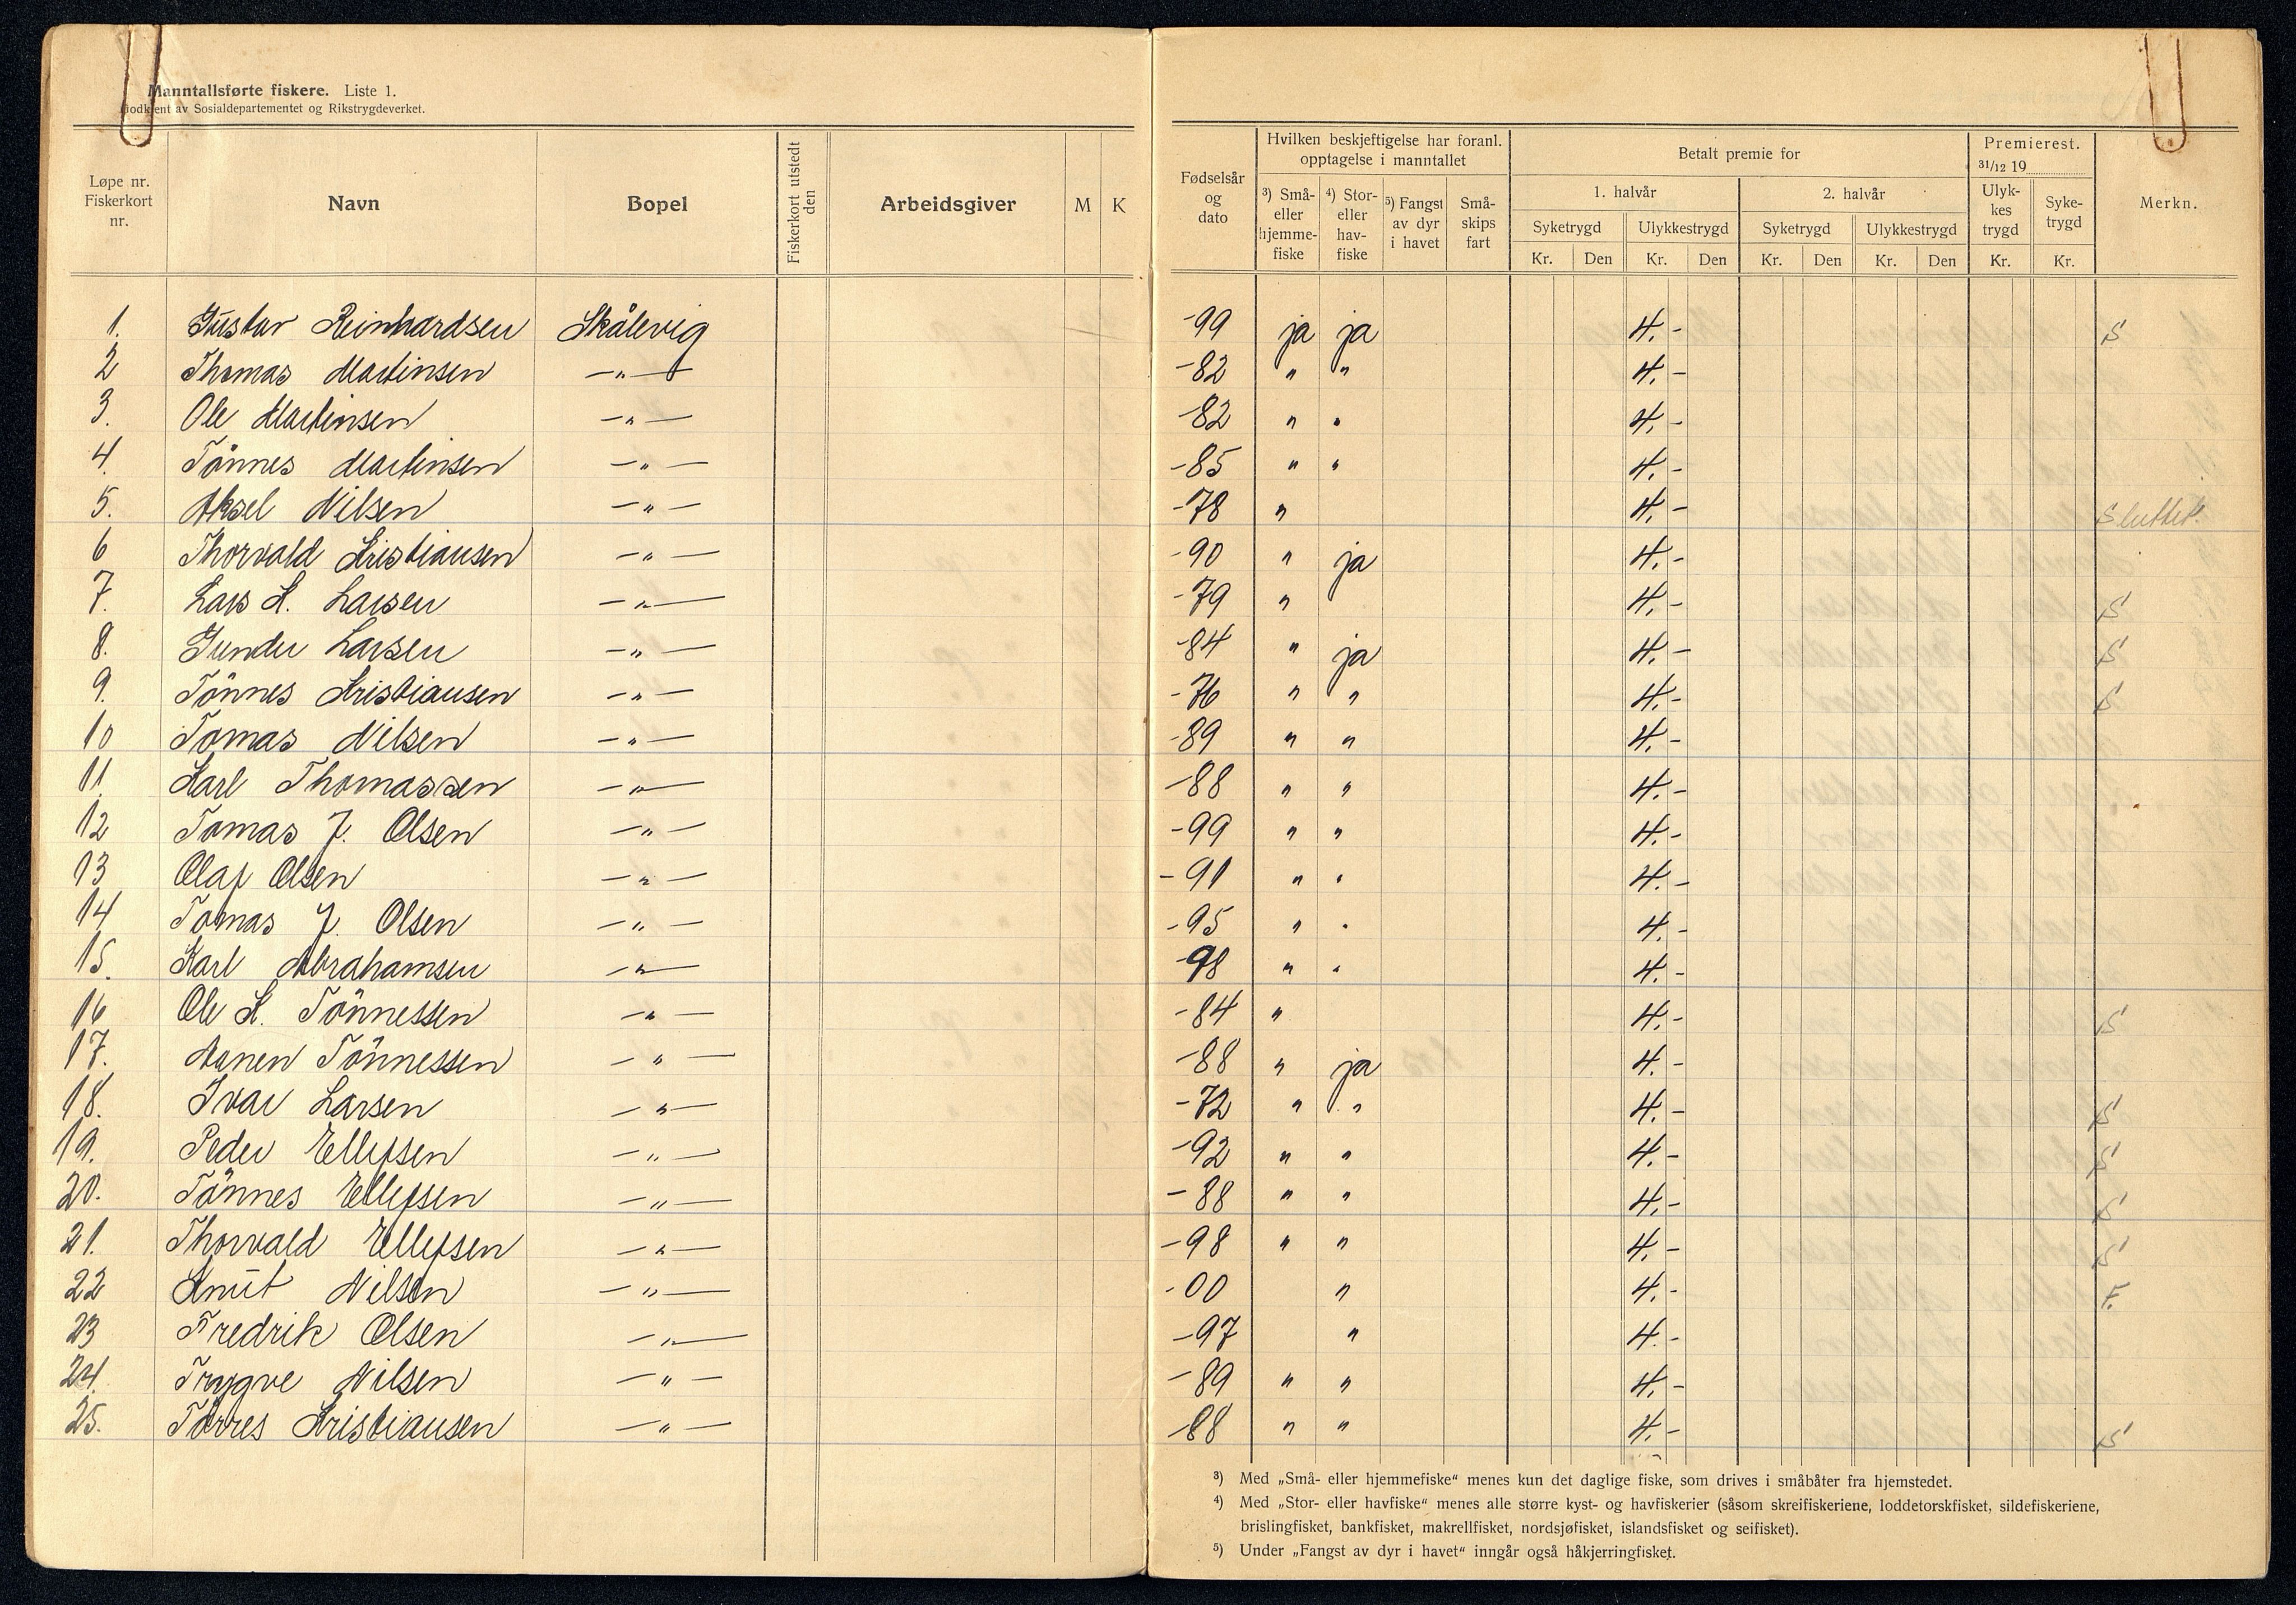 Manntallsførte fiskere. Liste 1.
Godkjent av Sosialdepartementet og Rikstrygdeverket.
Løpe nr. Fiskerkort nr. Navn Bopel Fiskerkort utstedt den Arbeidsgiver M K Fødselsår og dato Hvilken beskjeftigelse har foranl. opptagelse i manntallet Betalt premie for Premierest. 31/12 19 Merkn.
3) Små- eller hjemme-fiske 4) Stor- eller hav-fiske 5) Fangst av dyr i havet Små-skips fart 1. halvår 2. halvår Ulyk-kes trygd Syke-trygd
Syketrygd Ulykkestrygd Syketrygd Ulykkestrygd
Kr. Den Kr. Den Kr. Den Kr. Den Kr. Kr.
1. Gustav Reinhardsen Skålevig -99 ja ja 4.- S
2 Thomas Martinsen —"— -82 " " 4.-
3. Ole Martinsen —"— -82 " " 4.-
4. Tönnes Martinsen —"— -85 " " 4.-
5. Aksel Nilsen —"— -78 " 4.- Sluttet.
6 Thorvald Kristiansen —"— -90 " ja 4.-
7. Lars K. Larsen —"— -79 " 4.- S
8. Gunder Larsen —"— -84 " ja 4.- S
9. Tönnes Kristiansen —"— -76 " " 4.- S
10 Tomas Nilsen —"— -89 " " 4.-
11. Karl Thomassen —"— -88 " " 4.-
12 Tomas J. Olsen —"— -99 " " 4.-
13 Olaf Olsen —"— -91 " " 4.-
14 Tomas J. Olsen —"— -95 " " 4.-
15. Karl Abrahamsen —"— -98 " " 4.-
16 Ole K. Tönnessen —"— -84 " 4.- S
17. Aanen Tönnessen —"— -88 " ja 4.-
18. Ivar Larsen —"— -72 " " 4.- S
19. Peder Ellefsen —"— -92 " " 4.- S
20. Tönnes Ellefsen —"— -88 " " 4.- S
21. Thorvald Ellefsen —"— -98 " " 4.- S
22 Knut Nilsen —"— -00 " 4.- F.
23 Fredrik Olsen —"— -97 " 4.-
24. Trygve Nilsen —"— -89 " " 4.-
25. Torres Kristiansen —"— -88 " " 4.- S
3) Med „Små- eller hjemmefiske“ menes kun det daglige fiske, som drives i småbåter fra hjemstedet.
4) Med „Stor- eller havfiske“ menes alle større kyst- og havfiskerier (såsom skreifiskeriene, loddetorskfisket, sildefiskeriene,
brislingfisket, bankfisket, makrellfisket, nordsjøfisket, islandsfisket og seifisket).
5) Under „Fangst av dyr i havet“ inngår også håkjerringfisket.